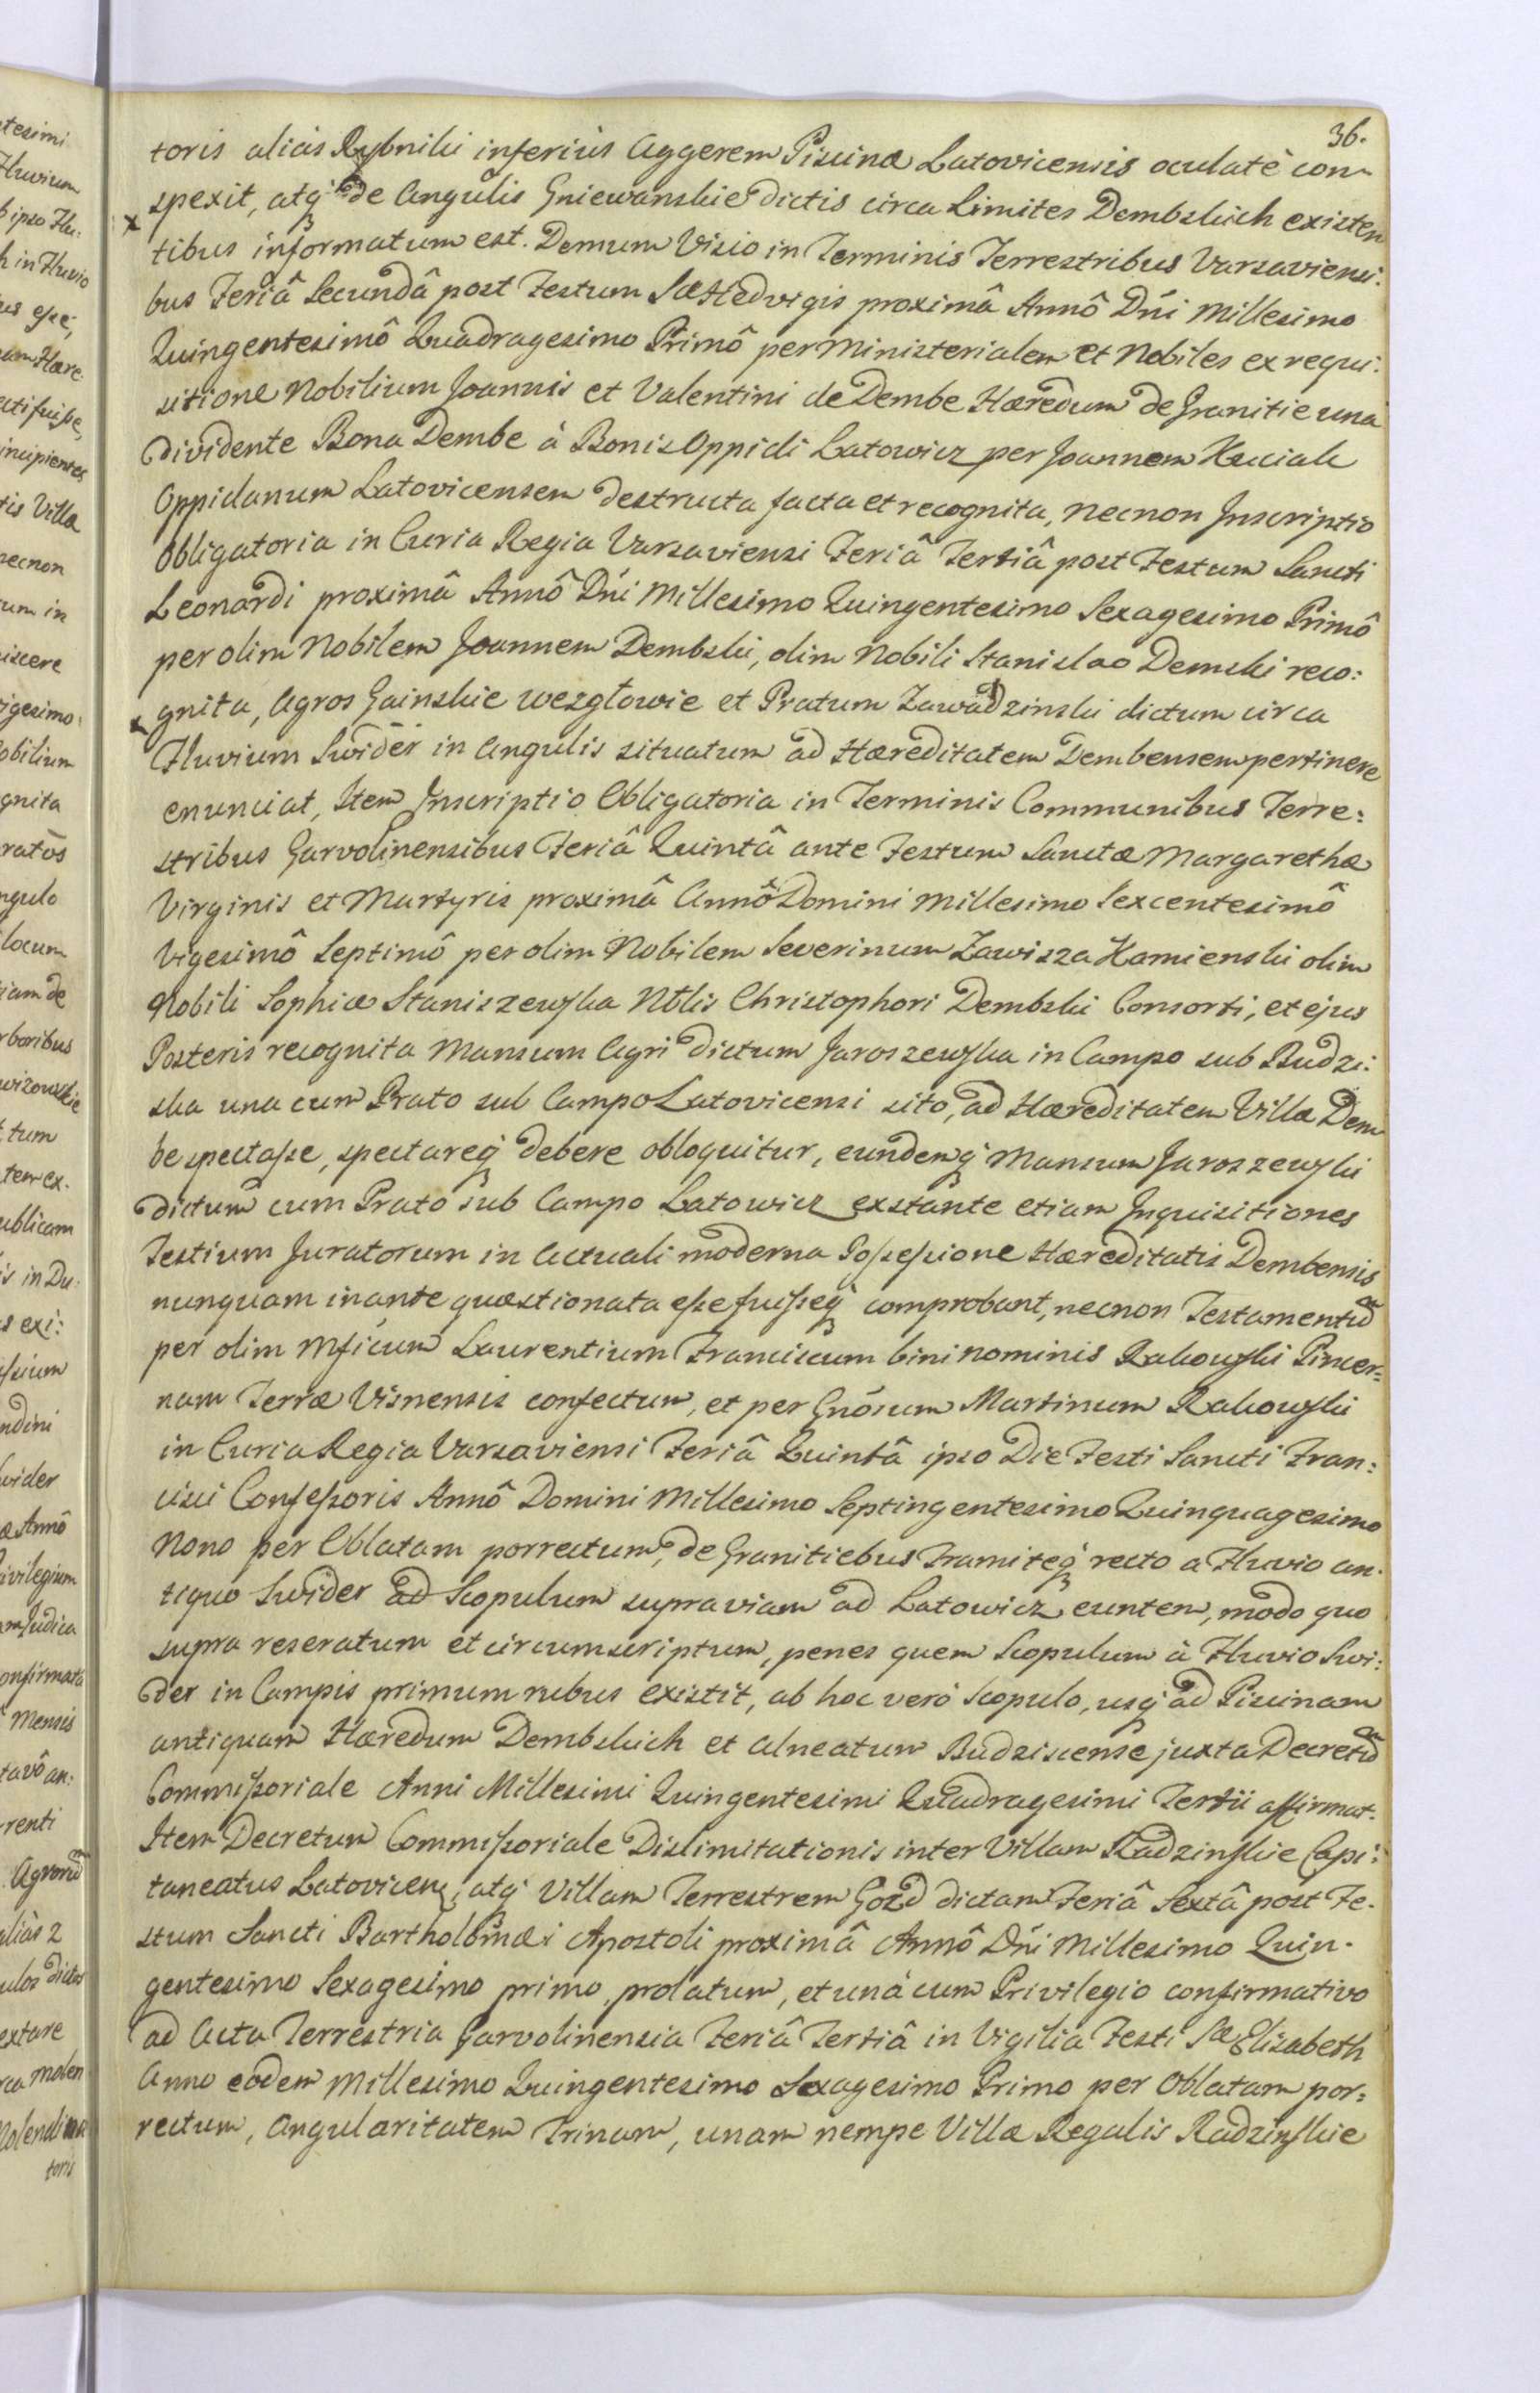 36.
toris aliàs Rybniki inferiùs Aggerem Piscinæ Latovicensis oculatè con-
spexit, atq; de Angulis Gniewanskie dictis circa Limites Dembskich existen
tibus informatum est. Demum Visio in Terminis Terrestribus Varsaviensi:
bus Feriâ Secundâ post Festum Sæ Hedvigis proximâ Annô Dńi Millesimo
Quingentesimô Quadragesimo Primô per Ministerialem et Nobiles ex requi:
sitione Nobilium Joannis et Valentini de Dembe Hæredum de Granitie una
dividente Bona Dembe à Bonis Oppidi Latowicz per Joannem Kuciak
Oppidanum Latovicensem destructa facta et recognita, necnon Inscriptio
Obligatoria in Curia Regia Varsaviensi Feriâ Tertiâ post Festum Sancti
Leonardi proximâ Annô Dńi Millesimo Quingentesimo Sexagesimo Primô
per olim Nobilem Joannem Dembski, olim Nobili Stanislao Demski reco:
gnita, Agros Gainskie wezgłowie et Pratum Zawadzinski dictum circa
Fluvium Swider in Angulis situatum ad Hæreditatem Dembensem pertinere
enunciat, Item Inscriptio Obligatoria in Terminis Communibus Terre:
stribus Garvolinensibus Feriâ Quintâ ante Festum Sanctæ Margarethæ
Virginis et Martyris proximâ Annô Domini Millesimo Sexcentesimô
Vigesimô Septimô per olim Nobilem Severinum Zawisza Kamienski olim
Nobili Sophiæ Staniszewska Nblis Christophori Dembski Consorti, et ejus
Posteris recognita Mansum Agri dictum Jaroszewska in Campo sub Budzi:
ska una cum Prato sub Campo Latovicensi sito, ad Hæreditatem Villæ Dem
be spectasse, spectareq; debere obloquitur, eundemq; Mansum Jaroszewski
dictum cum Prato sub Campo Latowicz exstante etiam Inquisitiones
Testium Juratorum in Actuali moderna Possessione Hæreditatis Dembensis
nunquam inante quæstionata esse fuisseq; comprobant, necnon Testamentum
per olim Mficum Laurentium Franciscum bini nominis Rakowski Pincer=
nam Terræ Visnensis confectum, et per Gnosum Martinum Rakowski
in Curia Regia Varsaviensi Feriâ Quintâ ipso Die Festi Sancti Fran:
cisci Confessoris Annô Domini Millesimo Septingentesimo Quinquagesimo
Nono per Oblatam porrectum, de Granitiebus Tramiteq; recto a Fluvio an-
tiquo Swider ad Scopulum supra viam ad Latowicz euntem, modo quo
supra reseratum et circumscriptum, penes quem Scopulum à Fluvio Swi:
der in Campis primum rubus existit, ab hoc verò Scopulo, usq; ad Piscinam
antiquam Hæredum Dembskich et Alneatum Budziscense juxta Decretum
Commissoriale Anni Millesimi Quingentesimi Quadragesimi Tertii affirmat.
Item Decretum Commissoriale Dislimitationis inter Villam Radzinskie Capi:
taneatus Latovicen; atq; Villam Terrestrem Gozd dictam Feriâ Sextâ post Fe-
stum Sancti Bartholomæi Apostoli proximâ Annô Dńi Millesimo Quin-
gentesimo Sexagesimo primo prolatum, et unà cum Privilegio confirmativo
ad Acta Terrestria Garvolinensia Feriâ Tertiâ in Vigilia Festi Sæ Elisabeth
Anno eodem Millesimo Quingentesimo Sexagesimo Primo per Oblatam por=
rectum, Angularitatem Trinam, unam nempe Villæ Regalis Radzinskie